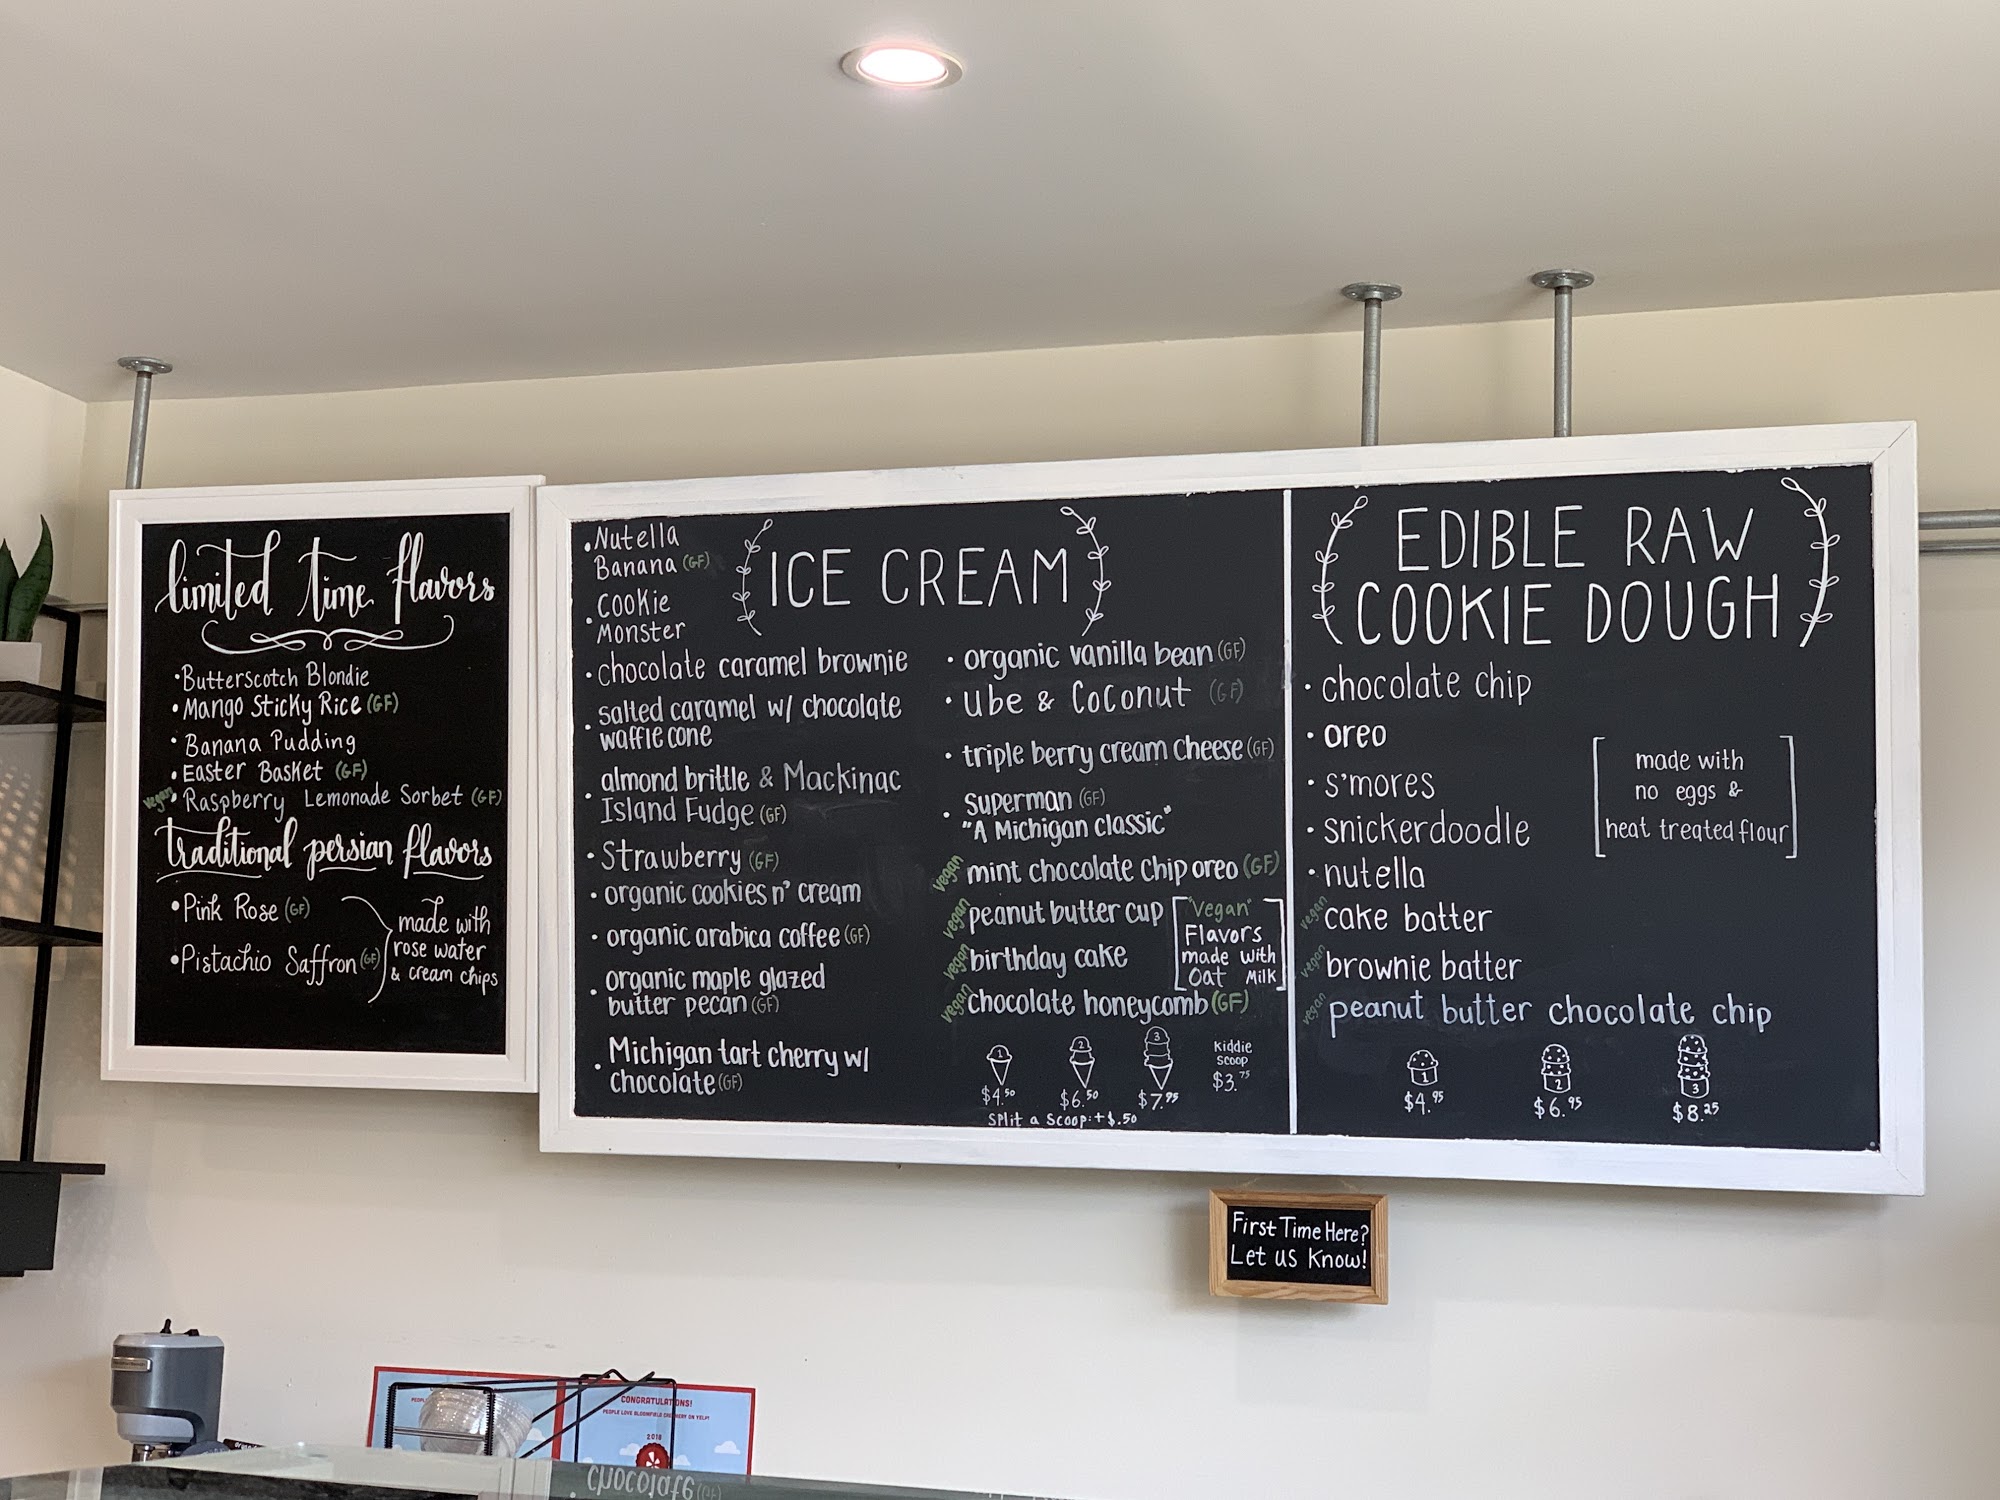 limited time flavors
• Butterscotch Blondie
• Mango Sticky Rice (GF)
• Banana Pudding
• Easter Basket (GF)
vegan • Raspberry Lemonade Sorbet (GF)
traditional persian flavors
• Pink Rose (GF)
• Pistachio Saffron (GF)
made with
rose water
& cream chips
ICE CREAM
• Nutella
Banana (GF)
• Cookie
Monster
• chocolate caramel brownie
• salted caramel w/ chocolate
waffle cone
• almond brittle & Mackinac
Island Fudge (GF)
• Strawberry (GF)
• organic cookies n' cream
• organic arabica coffee (GF)
• organic maple glazed
butter pecan (GF)
• Michigan tart cherry w/
chocolate (GF)
• organic vanilla bean (GF)
• Ube & Coconut (GF)
• triple berry cream cheese (GF)
• superman (GF)
"A Michigan classic"
vegan mint chocolate chip oreo (GF)
vegan peanut butter cup
vegan birthday cake
vegan chocolate honeycomb (GF)
"Vegan"
Flavors
made with
Oat Milk
1 2 3
$4.50 $6.50 $7.95
Kiddie
Scoop
$3.75
Split a Scoop: + $.50
EDIBLE RAW
COOKIE DOUGH
• chocolate chip
• oreo
• s'mores
• snickerdoodle
• nutella
vegan cake batter
vegan brownie batter
vegan peanut butter chocolate chip
made with
no eggs &
heat treated flour
1 2 3
$4.95 $6.95 $8.25
First Time Here?
Let us Know!
CONGRATULATIONS!
PEOPLE LOVE BLOOMFIELD CREAMERY ON YELP!
2018
chocolate (GF)